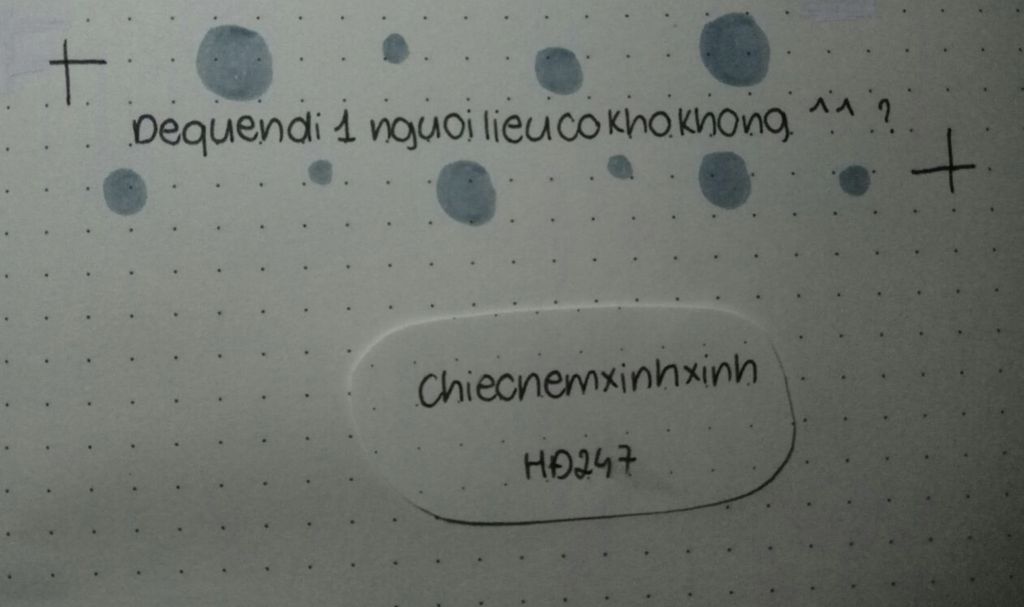 Dequendi 1 nguoilieucokhokhong ^^ ?
Chiecnemxinhxinh
HĐ247